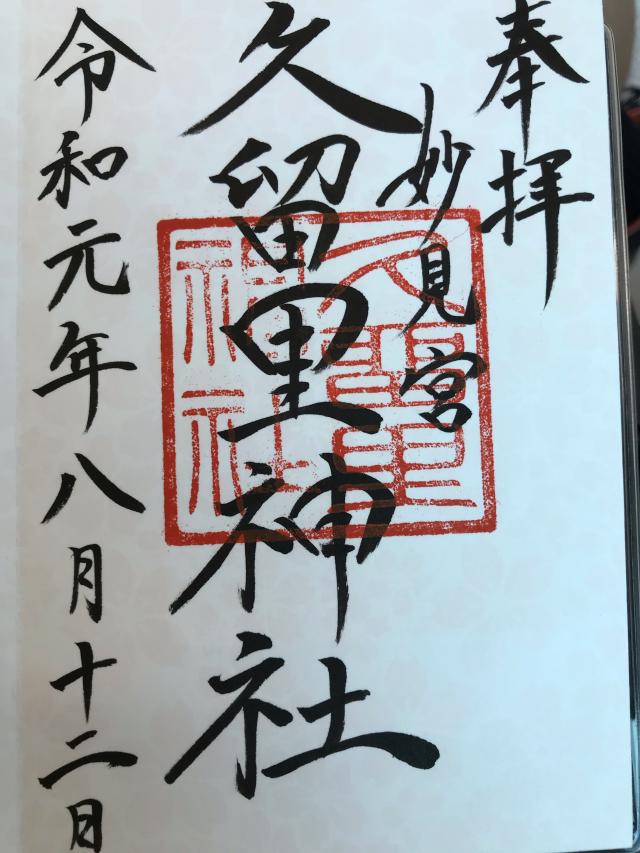 奉拝
妙見宮
久留里神社
久留里神社
令和元年八月十二日